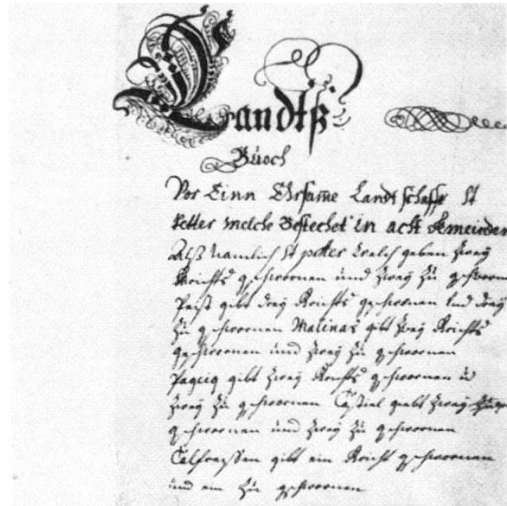 Landtß
Büoch
Vor Einn Ehrsame Landtschafft St
Petter welche Bestechet in acht Gemeinden
Alß Namlich St peter welch geben Zweÿ
Grichts geschwornen und Zweÿ Zu geschwornen
Peist gibt dreÿ Grichts geschwornen und dreÿ
Zu geschwornen Malinas gibt Zweÿ Grichts
geschwornen und Zweÿ Zu geschwornen
Pagig gibt Zweÿ Grichts geschwornen u
Zweÿ Zu geschwornen Castiel gebt Zweÿ
geschwornen und Zweÿ Zu geschwornen
Calfreissen gibt ein Gricht geschwornen
und ein Zu geschwornen